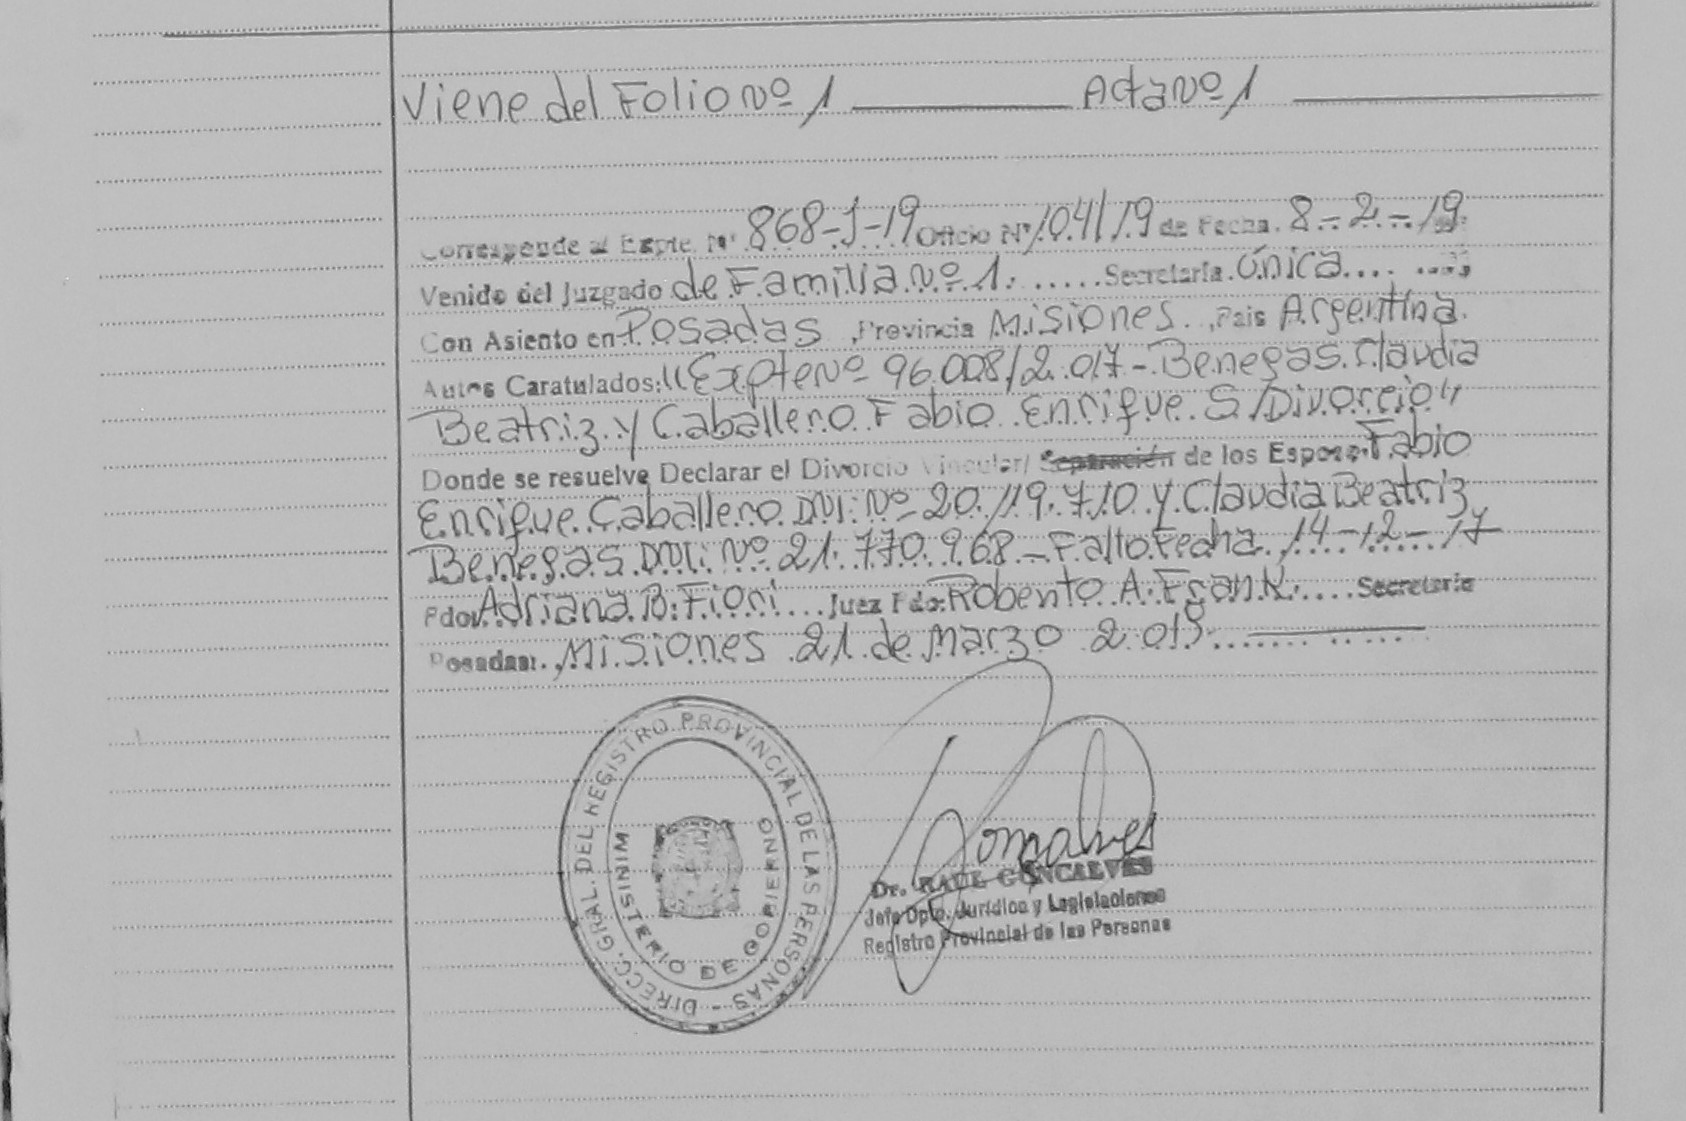 Viene del Folio Nº 1 ——— Acta Nº 1 ———
Corresponde al Expte. Nº 868-J-19 Oficio Nº 104/19 de Fecha. 8-2-19
Venido del Juzgado de Familia Nº 1. Secretaría Única
Con Asiento en Posadas, Provincia Misiones, Pais Argentina.
Autos Caratulados: "Expte Nº 96.008/2.017- Benegas Claudia
Beatriz y Caballero Fabio Enrique S/Divorcio"
Donde se resuelve Declarar el Divorcio Vincular/ Separación de los Esposos Fabio
Enrique Caballero DNI: Nº 20.119.710 y Claudia Beatriz
Benegas DNI: Nº 21.770.968 - Fallo Fecha 14-12-17
Fdo: Adriana B. Fiori Juez Fdo: Roberto A. Frank. Secretario
Posadas: Misiones 21 de Marzo 2.019
DIRECC. GRAL. DEL REGISTRO PROVINCIAL DE LAS PERSONAS -
MINISTERIO DE GOBIERNO
Goncalves
Dr. RAUL GONCALVES
Jefe Dpto. Jurídico y Legislaciones
Registro Provincial de las Personas